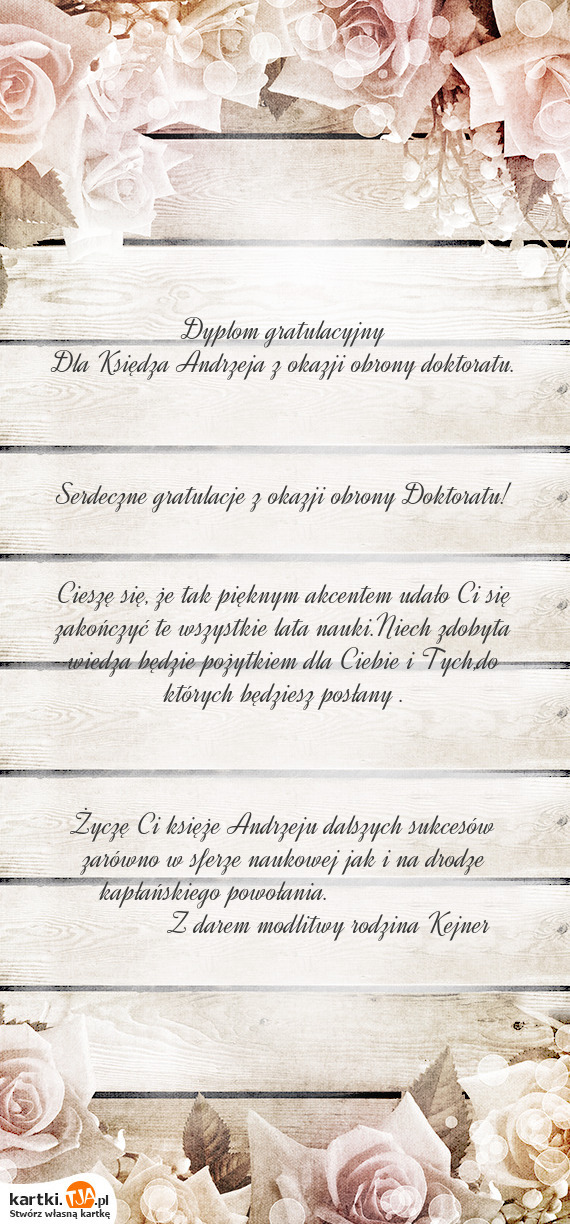 Dyplom gratulacyjny
Dla Księdza Andrzeja z okazji obrony doktoratu.
Serdeczne gratulacje z okazji obrony Doktoratu!
Cieszę się, że tak pięknym akcentem udało Ci się
zakończyć te wszystkie lata nauki.Niech zdobyta
wiedza będzie pożytkiem dla Ciebie i Tych,do
których będziesz posłany .
Życzę Ci księże Andrzeju dalszych sukcesów
zarówno w sferze naukowej jak i na drodze
kapłańskiego powołania.
Z darem modlitwy rodzina Kejner
kartki.TJA.pl
Stwórz własną kartkę